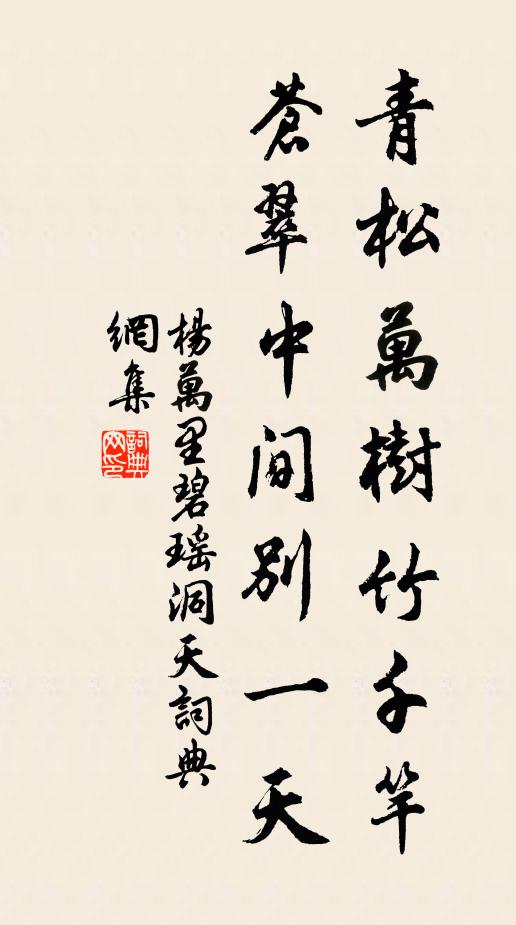 青松萬樹竹千竿
蒼翠中間別一天
楊萬里碧瑶洞天詞典
網集
詞典
网印